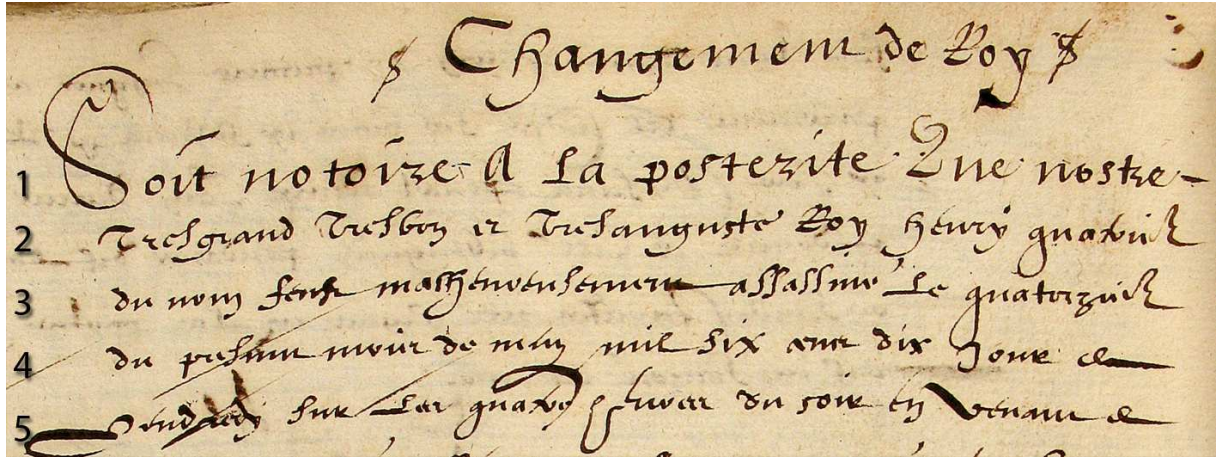 Changement de Roy
1 Soit notoire A La posterite Que nostre
2 Tresgrand Tresbon et Tresauguste Roy Henry quatriesme
3 du nom feust malheureusement assassiné Le quatorziesme
4 du present mois de may mil six cent dix Jour de
5 Vendredy sur Les quatre heures du soir en venant de